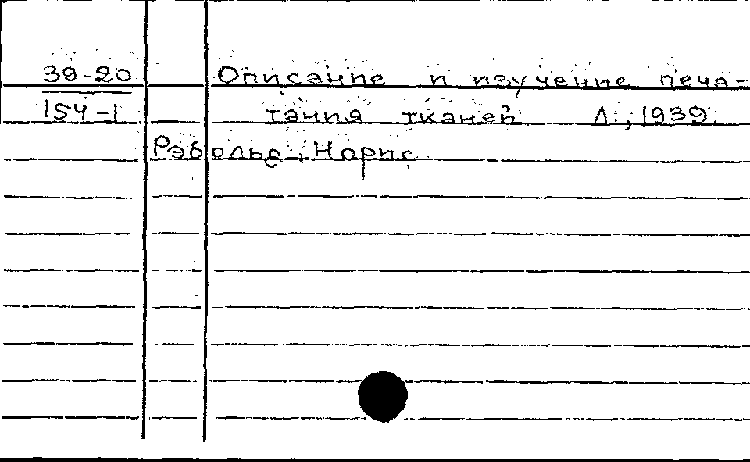 39-20 Описание и изучение печа-
154-1 тания тканей Л., 1939.
Рэболье, Норис